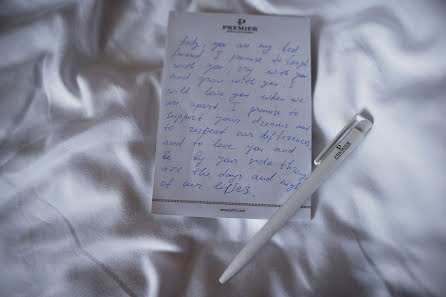 P
PREMIER
Andy, you are my best
friend. I promise to laugh
with you, cry with you
and grow with you. I
will love you when we
are apart. I promise to
support your dreams and
to respect our differences
and to love you and
be by your side through
all the days and nights
of our lifes.
P
PREMIER